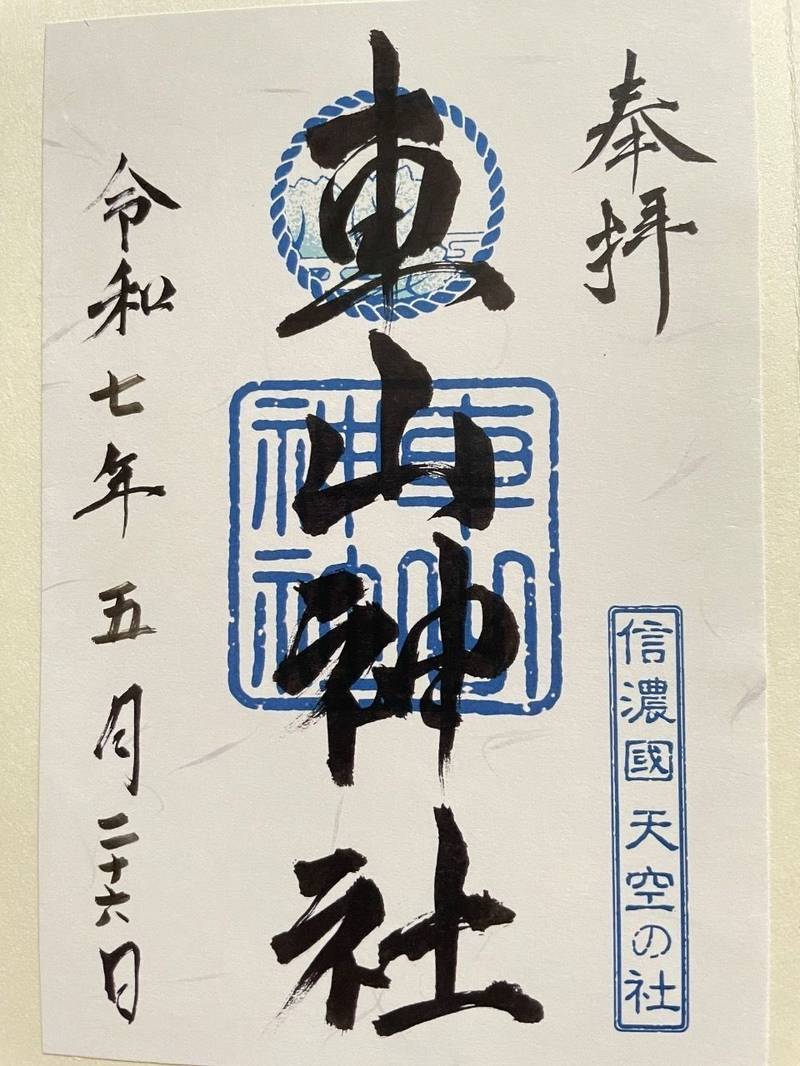 奉拝
車山神社
車山
神
信濃國 天空の社
令和七年五月二十六日